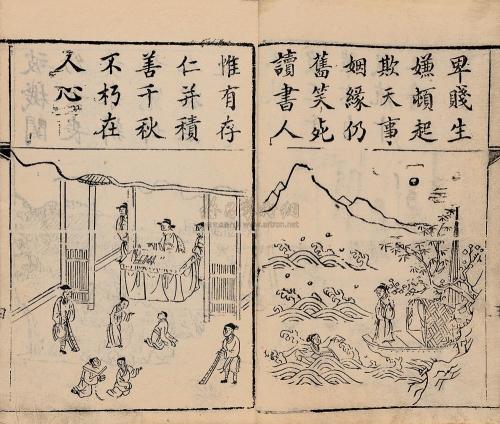 卑賤生
嫌頓起
欺天事
姻緣仍
舊笑死
讀書人
惟有存
仁并積
善千秋
不朽在
人心